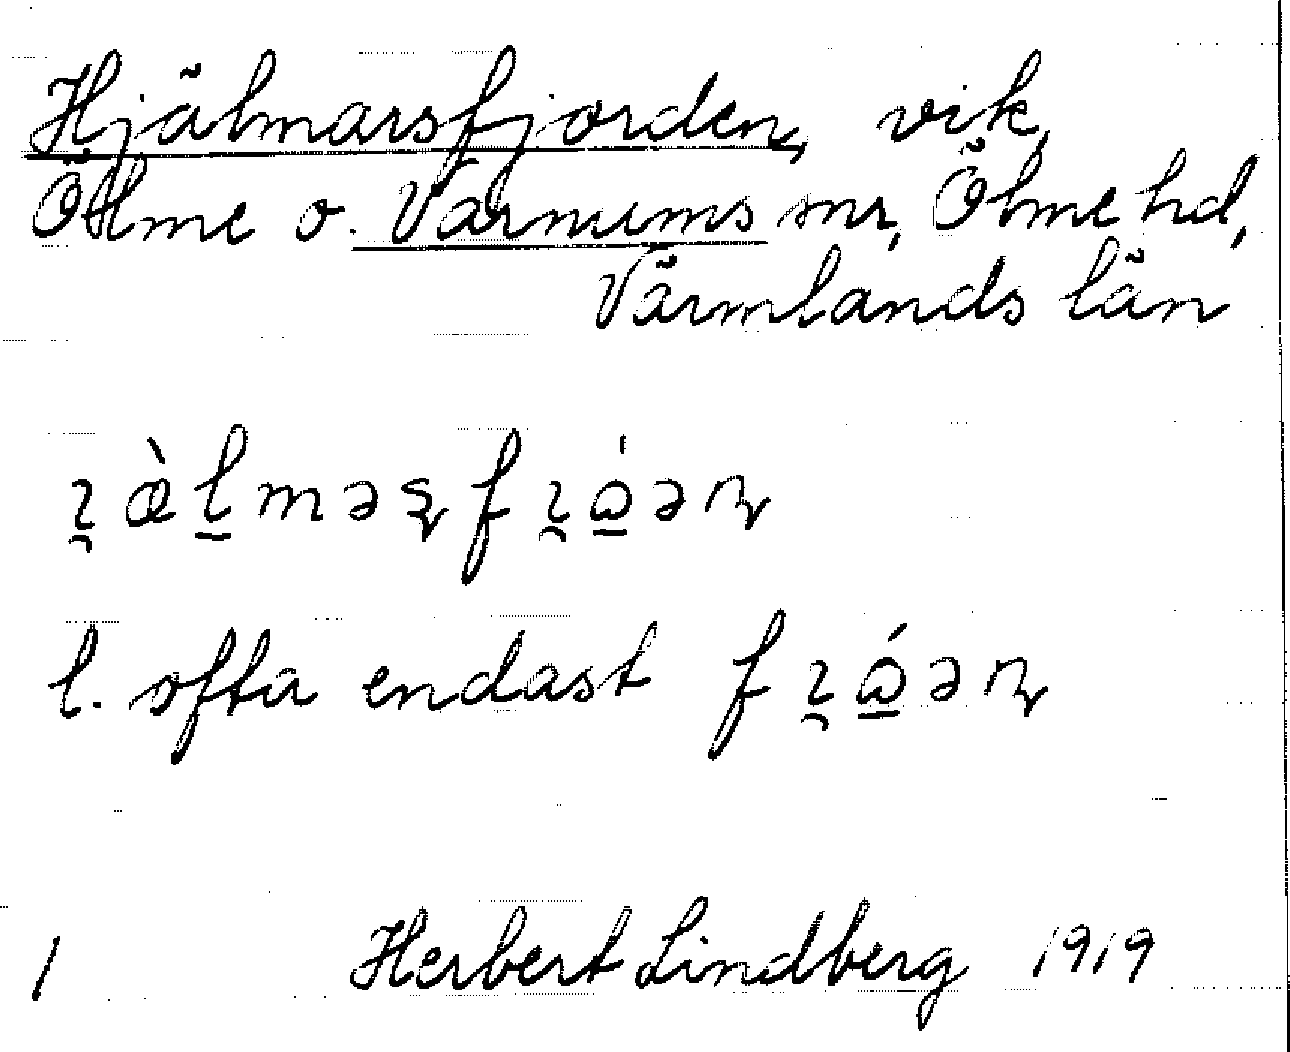 Hjälmarsfjorden, vik,
Ölme o. Varnums snr, Ölme hd,
Värmlands län
l. ofta endast
1 Herbert Lindberg 1919